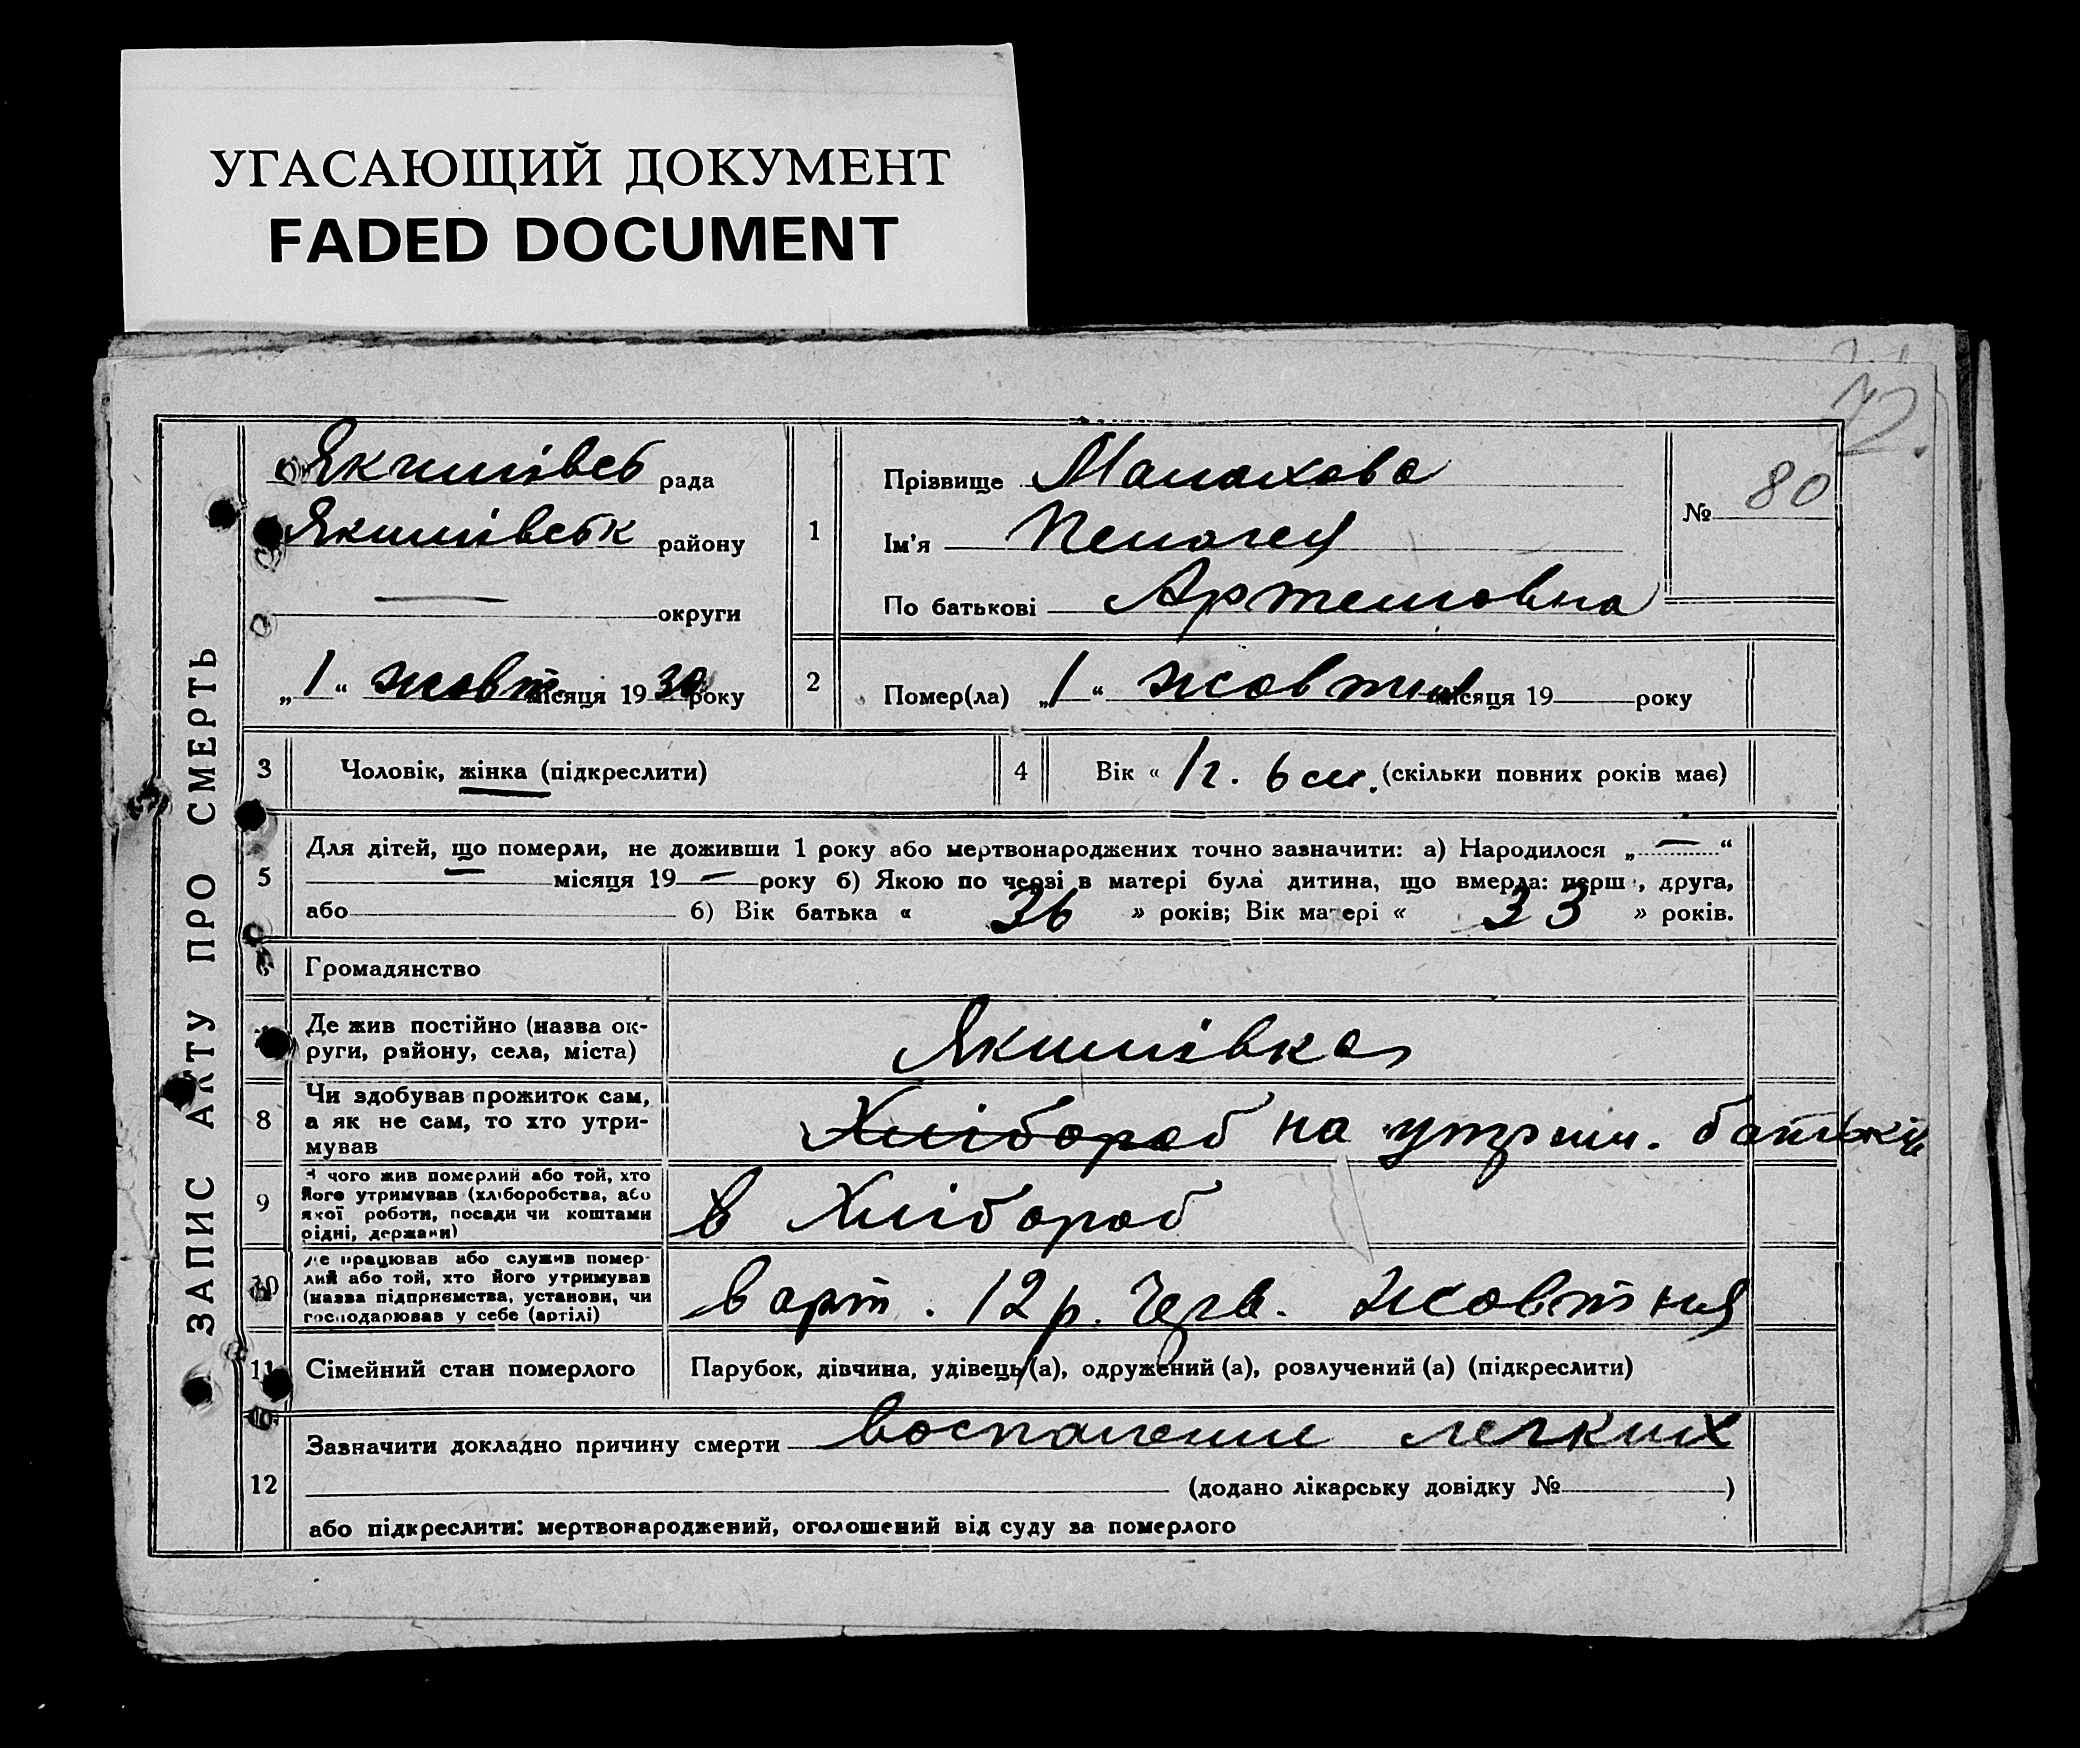 УГАСАЮЩИЙ ДОКУМЕНТ
FADED DOCUMENT
72.
ЗАПИС АКТУ ПРО СМЕРТЬ
Якимівсь рада
Якимівськ району
— округи
„1“ жовт місяця 1930 року
1
Прізвище Малахова
Ім'я Пелагея
По батькові Артемовна
№ 80
2
Помер(ла) „1“ жовтня місяця 19 року
3 Чоловік, жінка (підкреслити)
4 Вік « 1 г. 6 м. (скільки повних років має)
5 Для дітей, що померли, не доживши 1 року або мертвонароджених точно зазначити: а) Народилося „—“
— місяця 19 — року б) Якою по черзі в матері була дитина, що вмерла: перша, друга,
або б) Вік батька « 36 » років; Вік матері « 33 » років.
6 Громадянство
Де жив постійно (назва ок-
руги, району, села, міста)
Якимівка
8 Чи здобував прожиток сам,
а як не сам, то хто утри-
мував
Хлібороб на утрим. батьків
9 З чого жив померлий або той, хто
його утримував (хліборобства, або
якої роботи, посади чи коштами
рідні, держави)
в Хлібороб
10 Де працював або служив помер-
лий або той, хто його утримував
(назва підприємства, установи, чи
господарював у себе (артілі)
в арт. 12 р. Черв. Жовтня
11 Сімейний стан померлого
Парубок, дівчина, удівець (а), одружений (а), розлучений (а) (підкреслити)
12 Зазначити докладно причину смерти воспаление легких
(додано лікарську довідку № )
або підкреслити: мертвонароджений, оголошений від суду за померлого